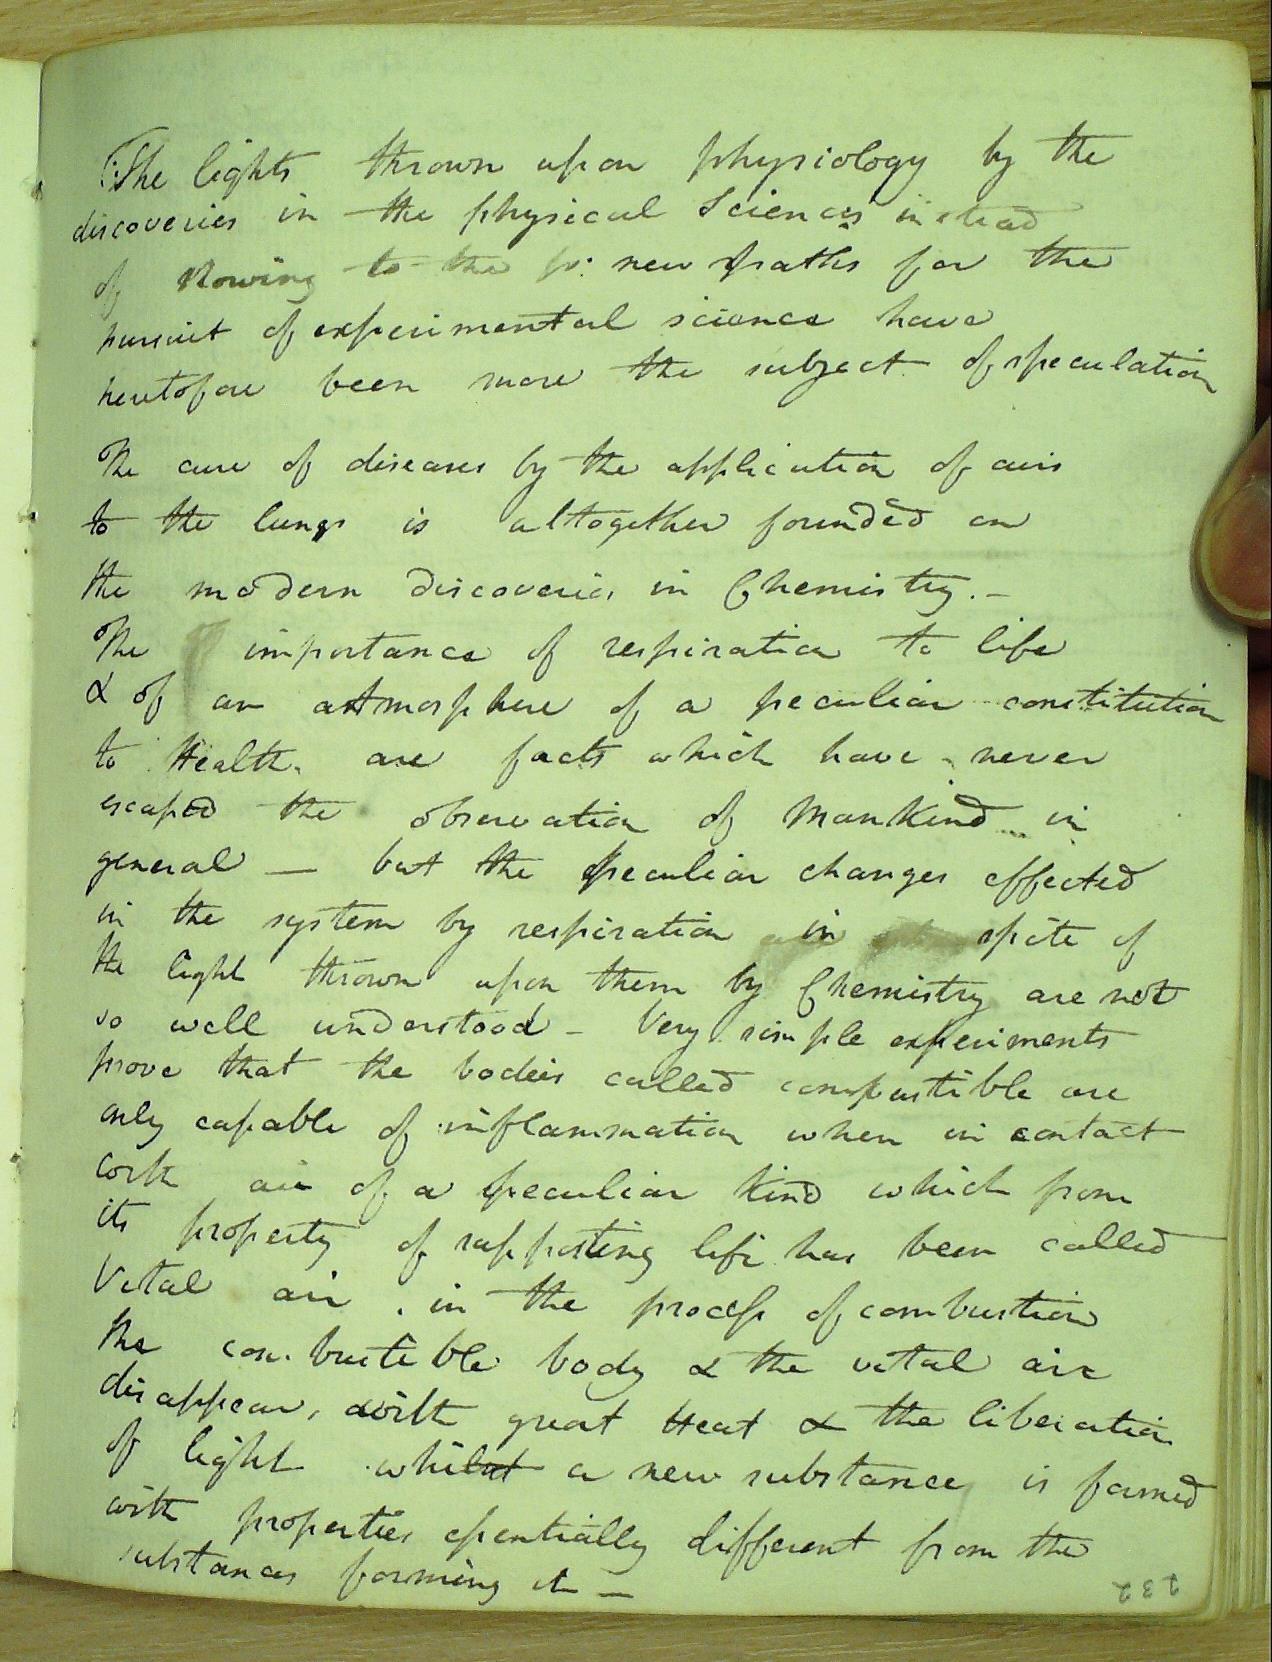 The lights thrown upon physiology by the
discoveries in the physical Sciences instead
of to the new paths for the
pursuit of experimental science have
heretofore been more the subject of speculation
The cure of diseases by the application of airs
to the lungs is altogether founded on
the modern discoveries in Chemistry. -
The importance of respiration to life
& of an atmosphere of a peculiar constitution
to Health. are facts which have never
escaped the observation of Mankind in
general — but the peculiar changes effected
in the system by respiration in spite of
the light thrown upon them by Chemistry are not
so well understood - Very simple experiments
prove that the bodies called compustible are
only capable of inflammation when in contact
with air of a peculiar kind which from
its property of supporting life has been called
Vital air. in the process of combustion
the combustible body & the vital air
disappear, with great Heat & the liberation
of light whilst a new substance is formed
with properties essentially different from the
substances forming it —
232